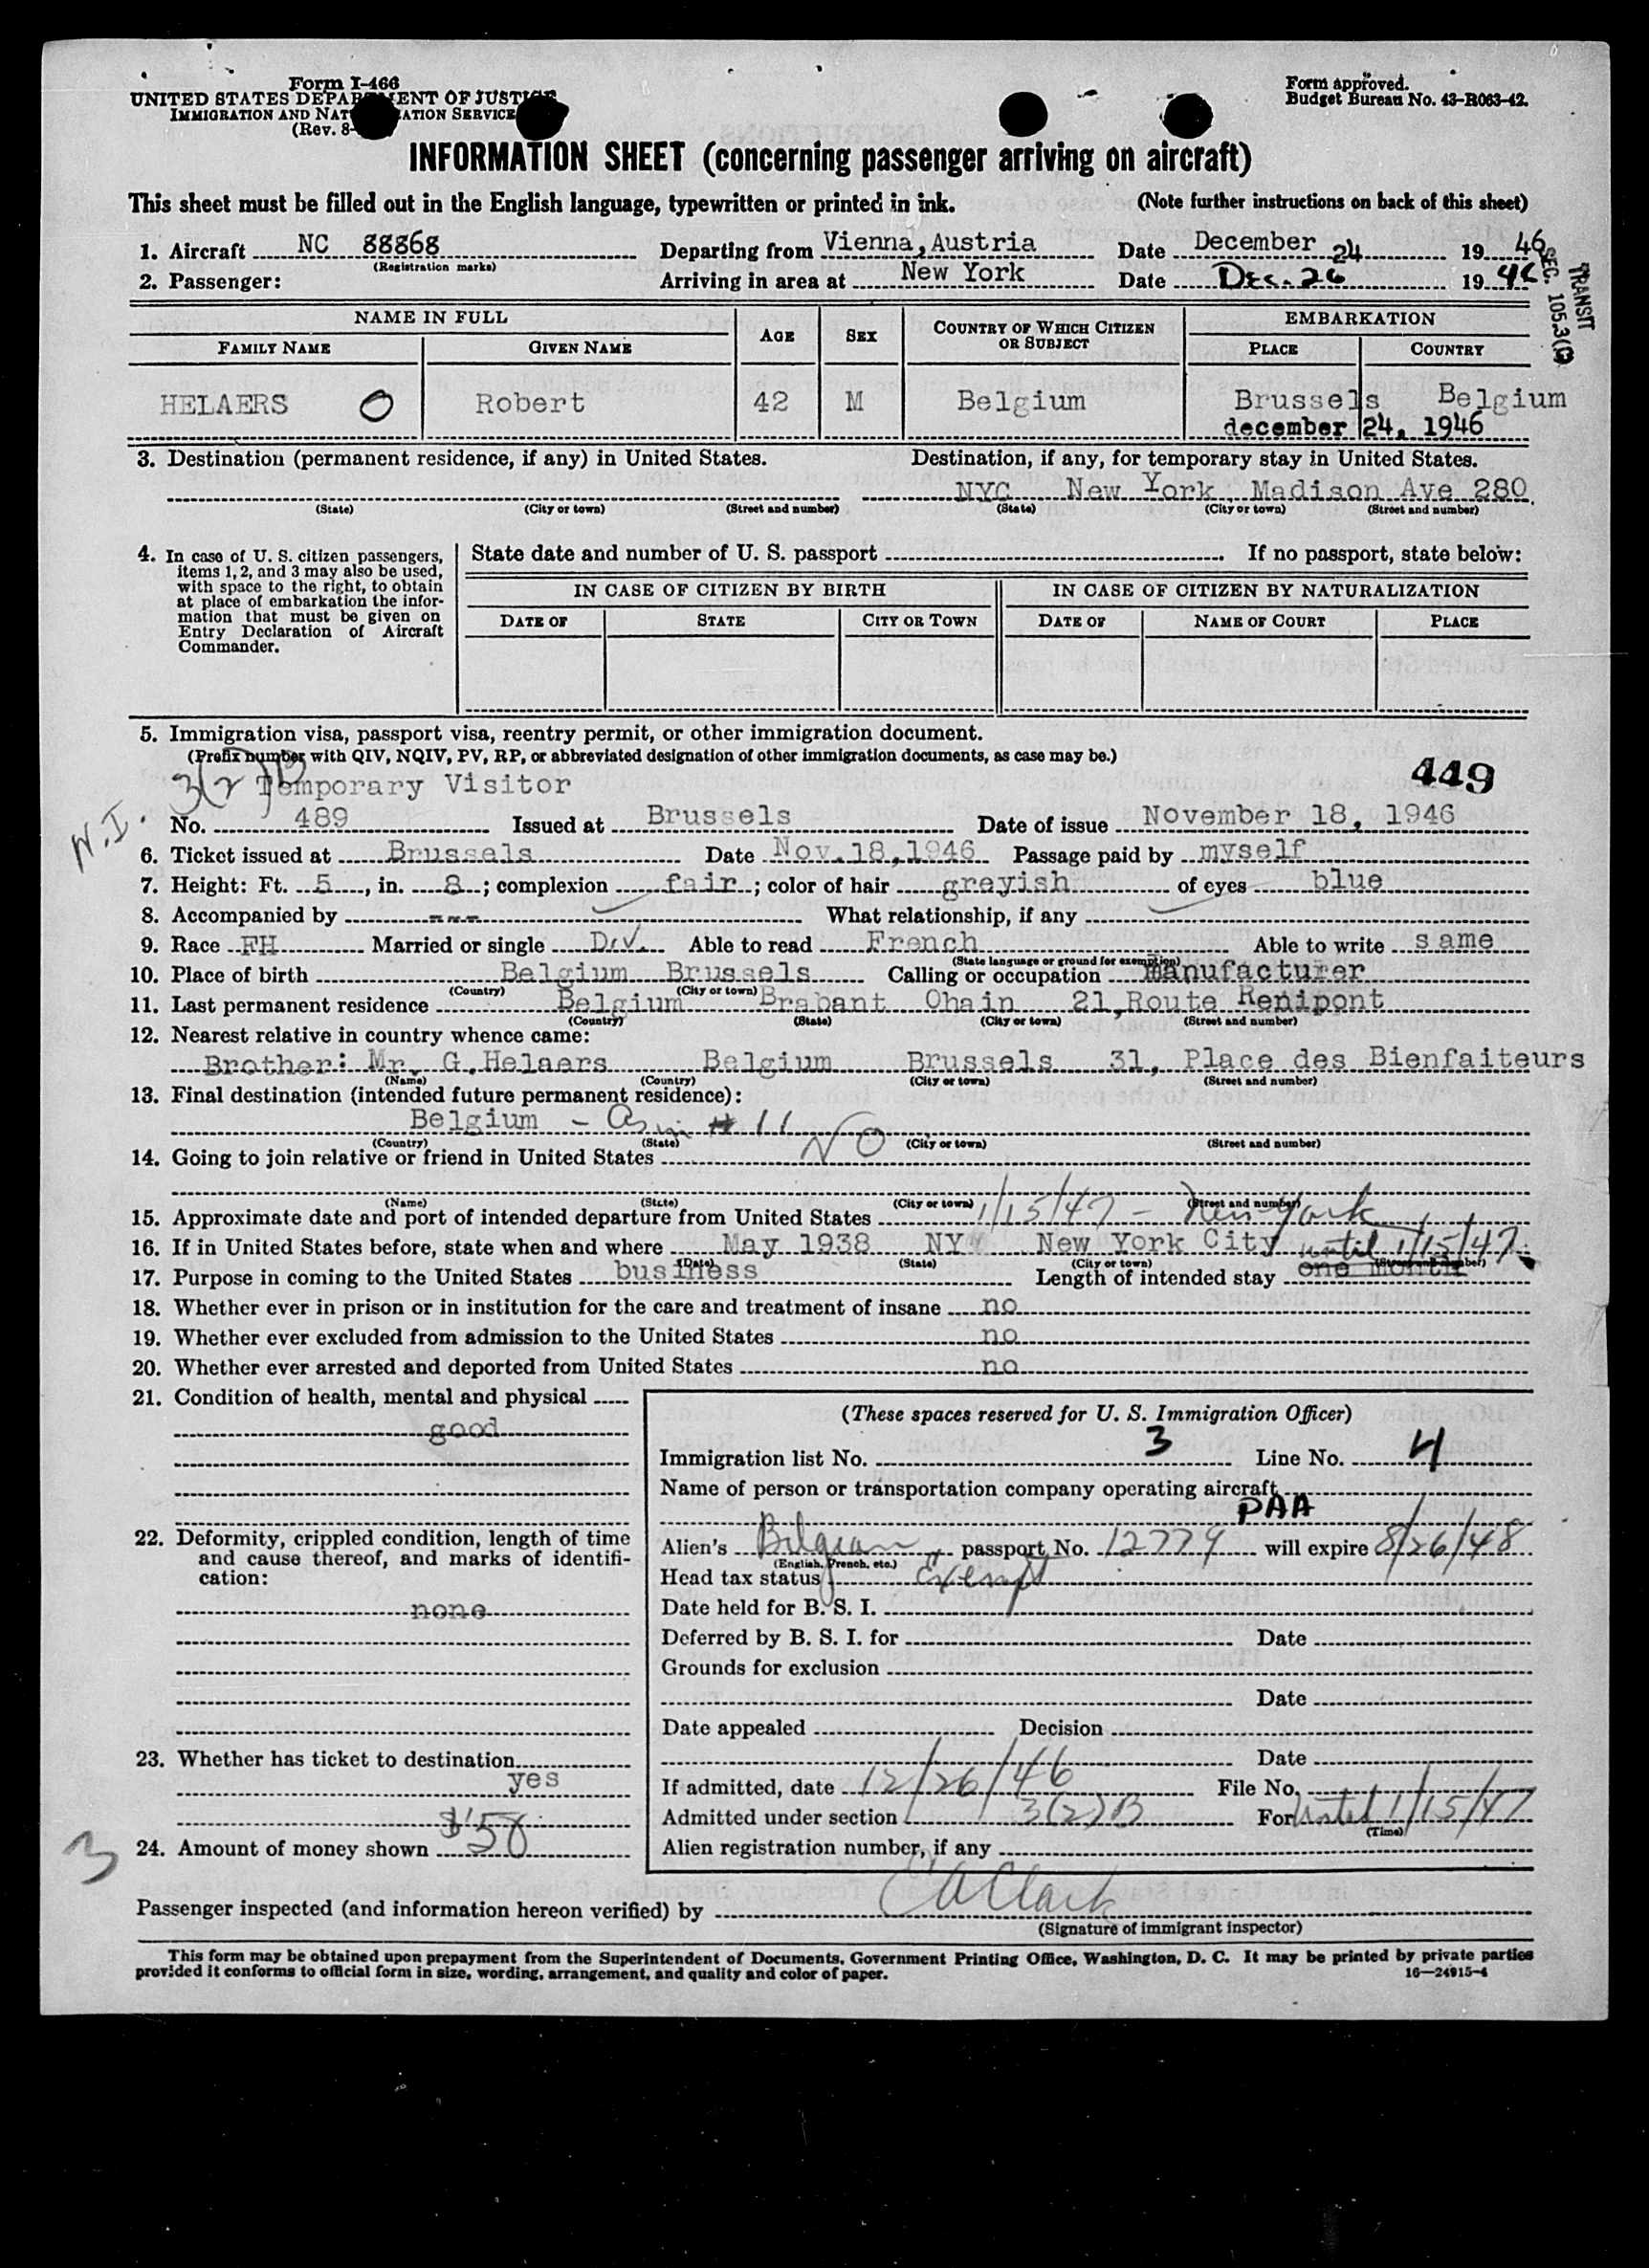 Form I-466
UNITED STATES DEPARTMENT OF JUSTICE
IMMIGRATION AND NATURALIZATION SERVICE
(Rev. 8-
Form approved.
Budget Bureau No. 43-R063-42.
INFORMATION SHEET (concerning passenger arriving on aircraft)
This sheet must be filled out in the English language, typewritten or printed in ink. (Note further instructions on back of this sheet)
1. Aircraft NC 88868 Departing from Vienna, Austria Date December 24 19 46
(Registration marks)
2. Passenger: Arriving in area at New York Date Dec. 26 19 46
TRANSIT
SEC. 105.3(
NAME IN FULL AGE SEX COUNTRY OF WHICH CITIZEN OR SUBJECT EMBARKATION
FAMILY NAME GIVEN NAME PLACE COUNTRY
HELAERS O Robert 42 M Belgium Brussels Belgium
december 24, 1946
3. Destination (permanent residence, if any) in United States. Destination, if any, for temporary stay in United States.
NYC New York, Madison Ave 280
(State) (City or town) (Street and number) (State) (City or town) (Street and number)
4. In case of U. S. citizen passengers, items 1, 2, and 3 may also be used, with space to the right, to obtain at place of embarkation the information that must be given on Entry Declaration of Aircraft Commander.
State date and number of U. S. passport If no passport, state below:
IN CASE OF CITIZEN BY BIRTH IN CASE OF CITIZEN BY NATURALIZATION
DATE OF STATE CITY OR TOWN DATE OF NAME OF COURT PLACE
5. Immigration visa, passport visa, reentry permit, or other immigration document.
(Prefix number with QIV, NQIV, PV, RP, or abbreviated designation of other immigration documents, as case may be.)
3(2)B Temporary Visitor 449
N.I.
No. 489 Issued at Brussels Date of issue November 18, 1946
6. Ticket issued at Brussels Date Nov.18,1946 Passage paid by myself
7. Height: Ft. 5, in. 8; complexion fair; color of hair greyish of eyes blue
8. Accompanied by --- What relationship, if any
9. Race FH Married or single Div. Able to read French Able to write same
(State language or ground for exemption)
10. Place of birth Belgium Brussels Calling or occupation manufacturer
(Country) (City or town)
11. Last permanent residence Belgium Brabant Ohain 21, Route Renipont
(Country) (State) (City or town) (Street and number)
12. Nearest relative in country whence came:
Brother: Mr. G. Helaers Belgium Brussels 31, Place des Bienfaiteurs
(Name) (Country) (City or town) (Street and number)
13. Final destination (intended future permanent residence):
Belgium - As in # 11
(Country) (State) (City or town) (Street and number)
14. Going to join relative or friend in United States NO
(Name) (State) (City or town) (Street and number)
15. Approximate date and port of intended departure from United States 1/15/47 - New York
16. If in United States before, state when and where May 1938 NY New York City
(Date) (State) (City or town) (Street and number)
17. Purpose in coming to the United States business Length of intended stay one month until 1/15/47
18. Whether ever in prison or in institution for the care and treatment of insane no
19. Whether ever excluded from admission to the United States no
20. Whether ever arrested and deported from United States no
21. Condition of health, mental and physical
good
22. Deformity, crippled condition, length of time and cause thereof, and marks of identification:
none
23. Whether has ticket to destination
yes
24. Amount of money shown $150
3
(These spaces reserved for U. S. Immigration Officer)
Immigration list No. 3 Line No. 4
Name of person or transportation company operating aircraft
PAA
Alien's Belgian passport No. 12779 will expire 8/26/48
(English, French, etc.)
Head tax status Exempt
Date held for B. S. I.
Deferred by B. S. I. for Date
Grounds for exclusion
Date
Date appealed Decision
Date
If admitted, date 12/26/46 File No.
Admitted under section 3(2)B For until 1/15/47
(Time)
Alien registration number, if any
Passenger inspected (and information hereon verified) by CA Clark
(Signature of immigrant inspector)
This form may be obtained upon prepayment from the Superintendent of Documents, Government Printing Office, Washington, D. C. It may be printed by private parties
provided it conforms to official form in size, wording, arrangement, and quality and color of paper. 16—24915-4